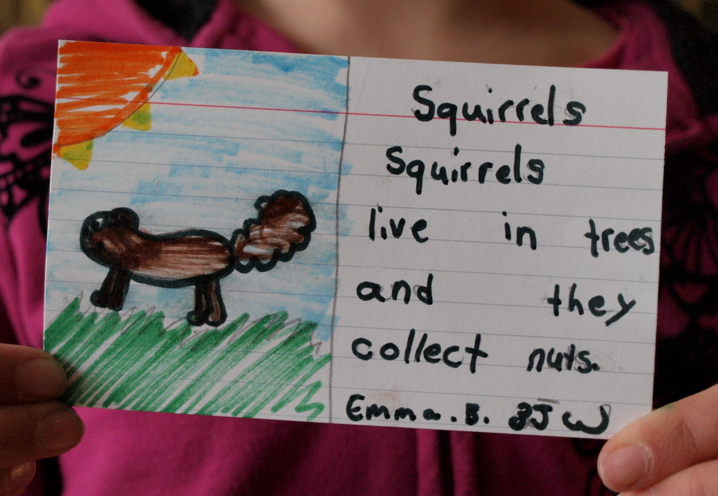 Squirrels
Squirrels
live in trees
and they
collect nuts.
Emma. B. 2JW